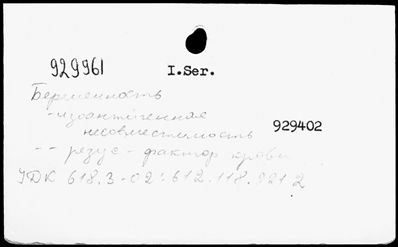 929961
I.Ser.
Беременность
-изоантигенная
несовместимость
929402
-- резус-фактор крови
УДК 618.3-02:612.118.221.2